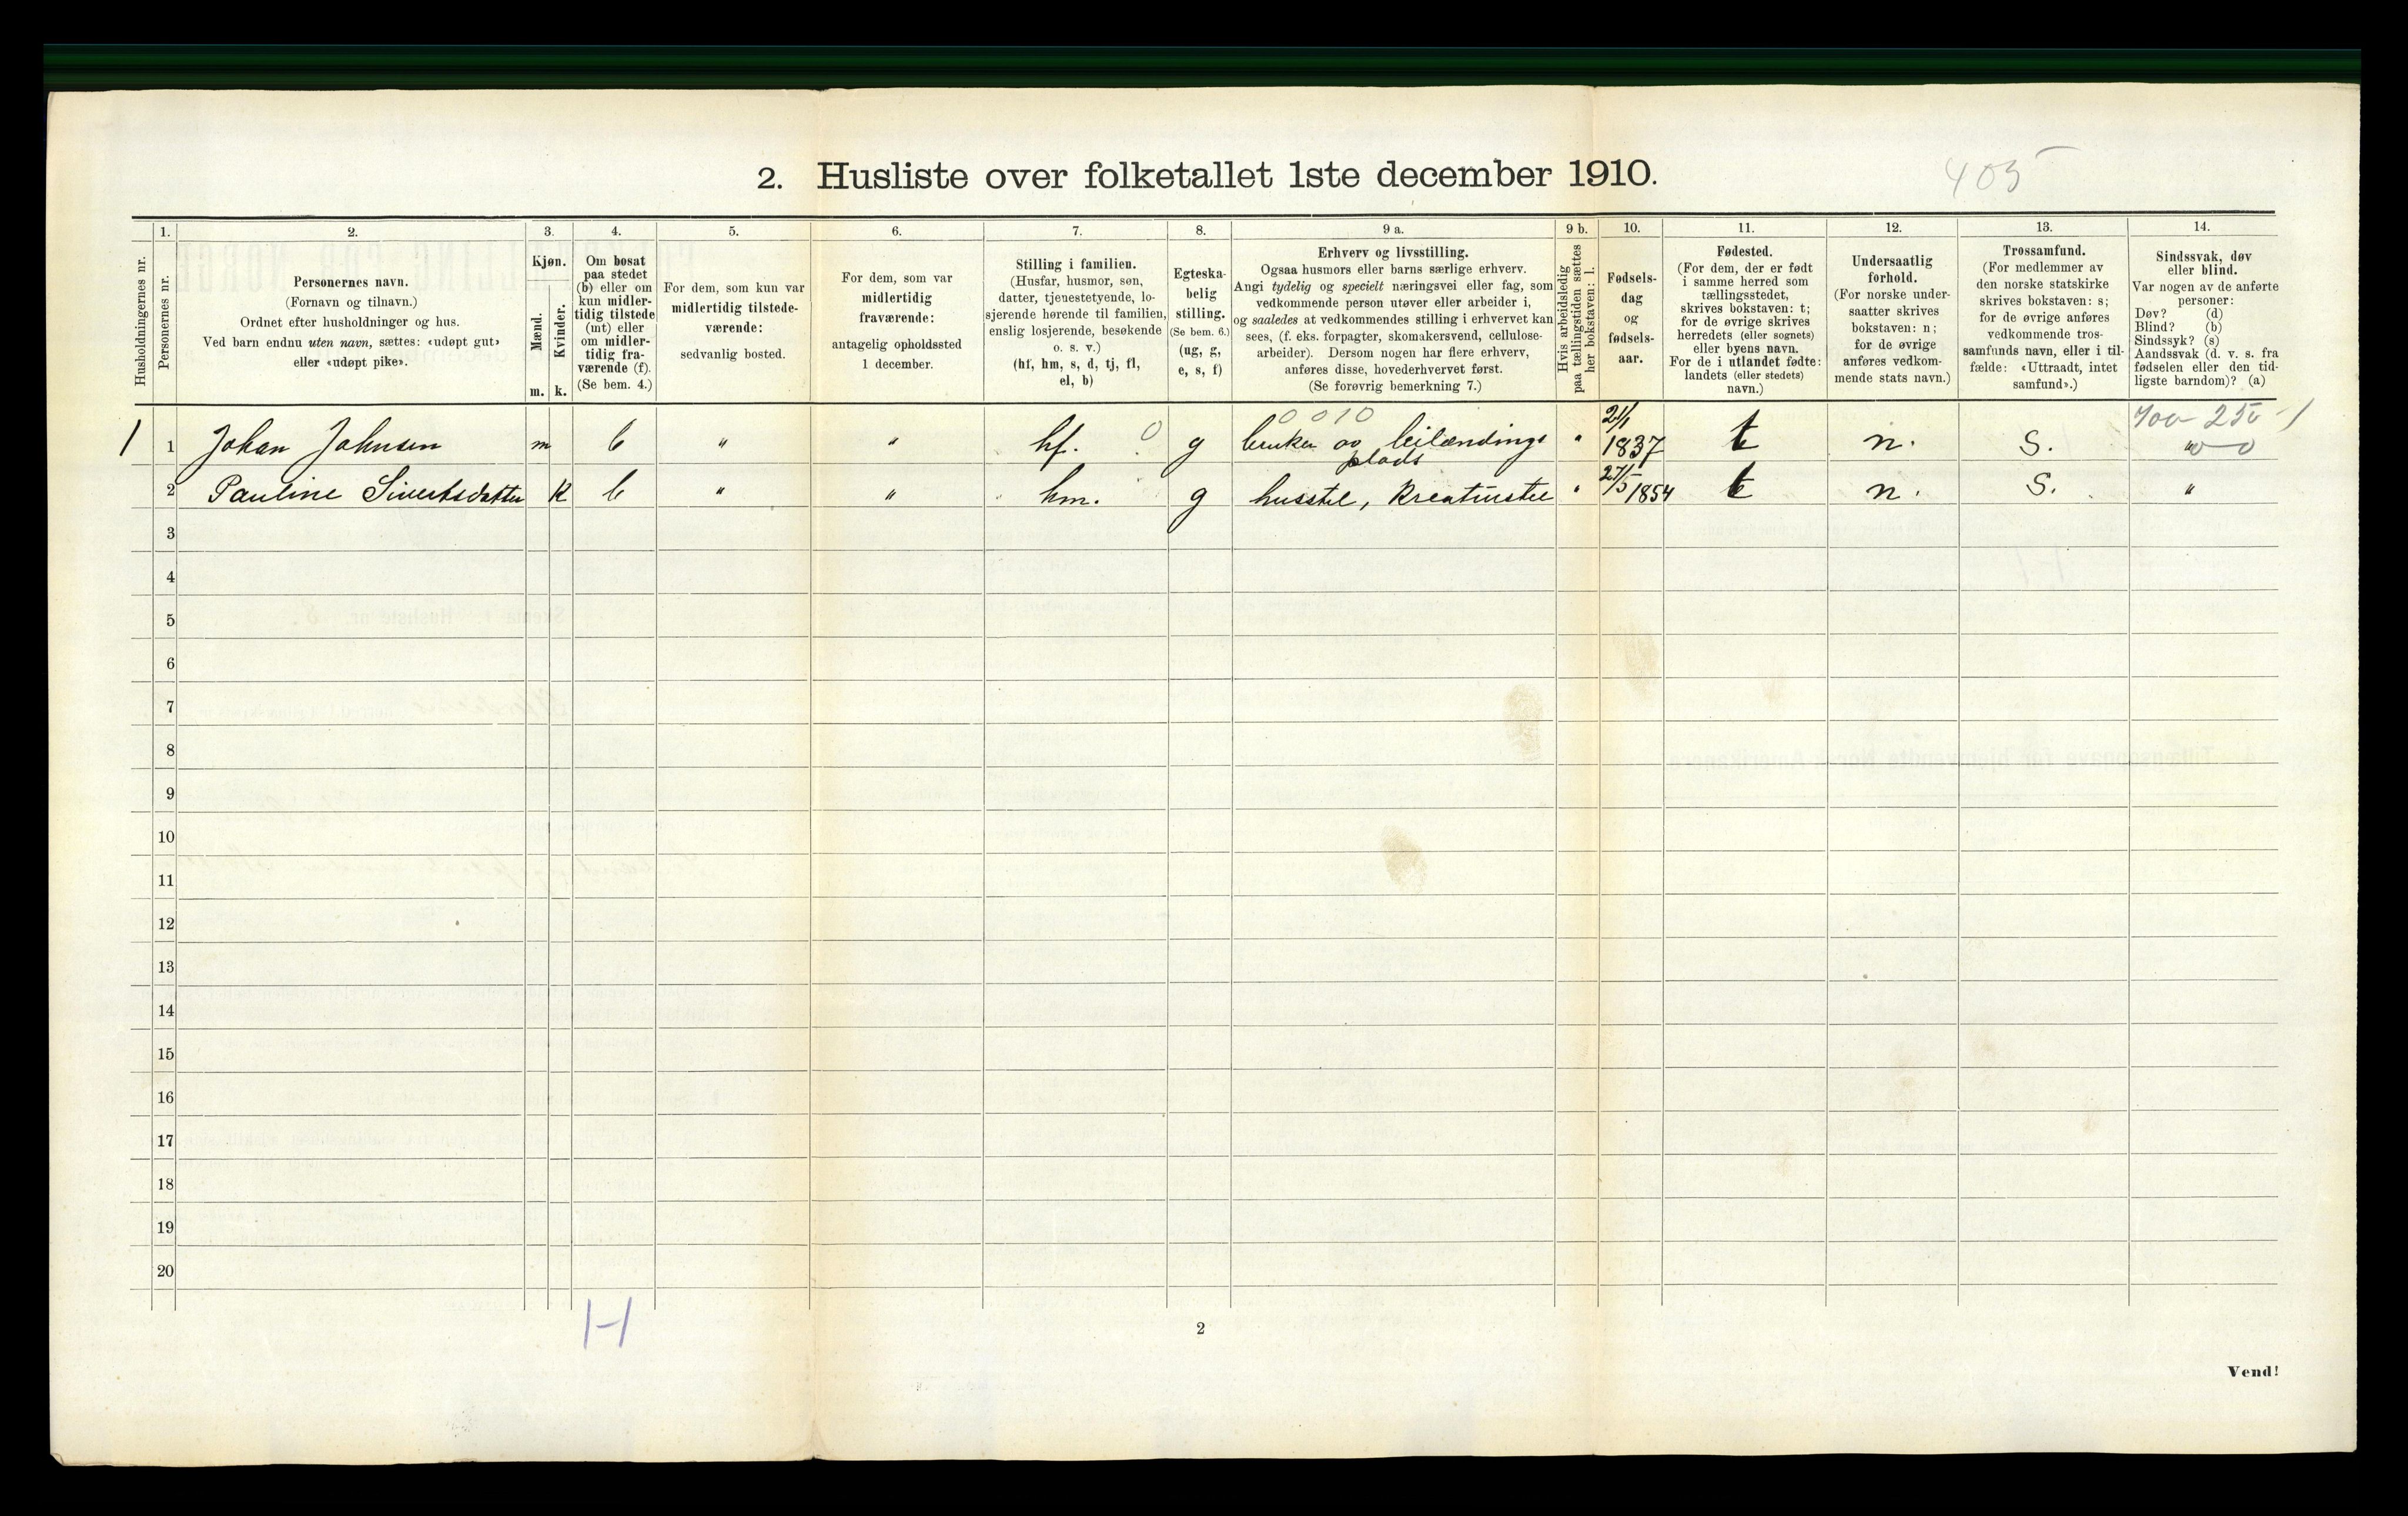 2. Husliste over folketallet 1ste december 1910.
405
1. 2. 3. 4. 5. 6. 7. 8. 9 a. 9 b. 10. 11. 12. 13. 14.
Husholdningernes nr.
Personernes nr.
Personernes navn.
(Fornavn og tilnavn.)
Ordnet efter husholdninger og hus.
Ved barn endnu uten navn, sættes: «udøpt gut»
eller «udøpt pike».
Kjøn.
Mænd.
Kvinder.
m. k.
Om bosat
paa stedet
(b) eller om
kun midler-
tidig tilstede
(mt) eller
om midler-
tidig fra-
værende (f).
(Se bem. 4.)
For dem, som kun var
midlertidig tilstede-
værende:
sedvanlig bosted.
For dem, som var
midlertidig
fraværende:
antagelig opholdssted
1 december.
Stilling i familien.
(Husfar, husmor, søn,
datter, tjenestetyende, lo-
sjerende hørende til familien,
enslig losjerende, besøkende
o. s. v.)
(hf, hm, s, d, tj, fl,
el, b)
Egteska-
belig
stilling.
(Se bem. 6.)
(ug, g,
e, s, f)
Erhverv og livsstilling.
Ogsaa husmors eller barns særlige erhverv.
Angi tydelig og specielt næringsvei eller fag, som
vedkommende person utøver eller arbeider i,
og saaledes at vedkommendes stilling i erhvervet kan
sees, (f. eks. forpagter, skomakersvend, cellulose-
arbeider). Dersom nogen har flere erhverv,
anføres disse, hovederhvervet først.
(Se forøvrig bemerkning 7.)
Hvis arbeidsledig
paa tællingstiden sættes
her bokstaven: l.
Fødsels-
dag
og
fødsels-
aar.
Fødested.
(For dem, der er født
i samme herred som
tællingsstedet,
skrives bokstaven: t;
for de øvrige skrives
herredets (eller sognets)
eller byens navn.
For de i utlandet fødte:
landets (eller stedets)
navn.)
Undersaatlig
forhold.
(For norske under-
saatter skrives
bokstaven: n;
for de øvrige
anføres vedkom-
mende stats navn.)
Trossamfund.
(For medlemmer av
den norske statskirke
skrives bokstaven: s;
for de øvrige anføres
vedkommende tros-
samfunds navn, eller i til-
fælde: «Uttraadt, intet
samfund».)
Sindssvak, døv
eller blind.
Var nogen av de anførte
personer:
Døv? (d)
Blind? (b)
Sindssyk? (s)
Aandssvak (d. v. s. fra
fødselen eller den tid-
ligste barndom)? (a)
0 0 10 2/1 700-250-1
1 1 Johan Johnsen m b " " hf. 0 g bruker av leilændings " 1837 t n. S. " 0
plads
2 Pauline Sivertsdatter k b " " hm. g husstel, kreaturstel " 27/5 1854 t n. S. "
3
4
5
6
7
8
9
10
11
12
13
14
15
16
17
18
19
20
1-1
2
Vend!